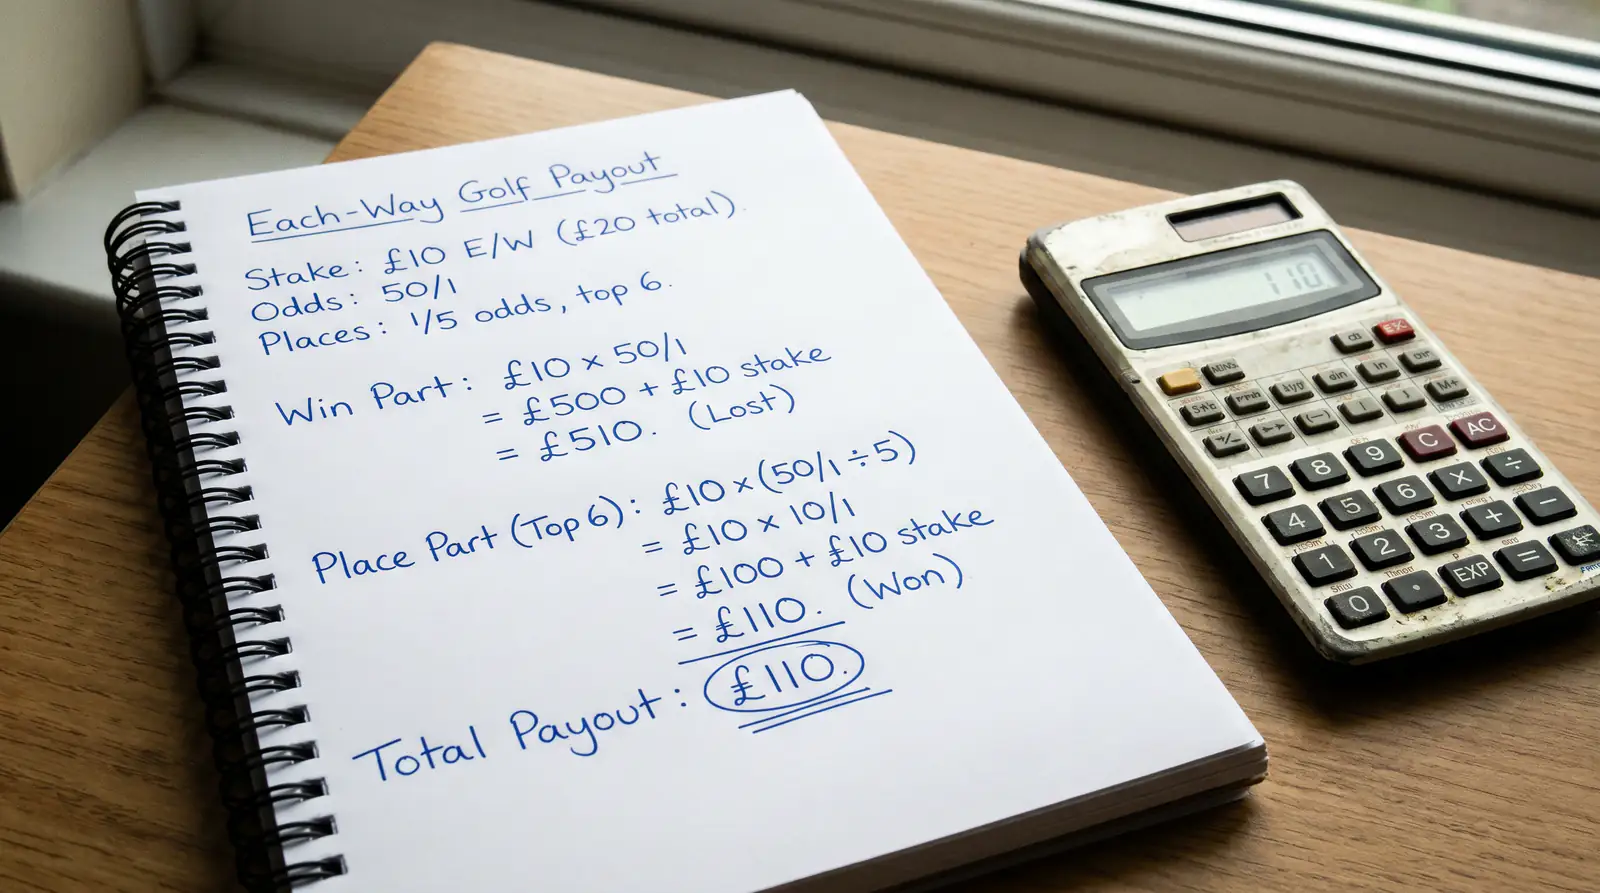 Each-Way Golf Payout
Stake: £10 E/W (£20 total).
Odds: 50/1
Places: 1/5 odds, top 6.
Win Part: £10 × 50/1
= £500 + £10 stake
= £510. (Lost)
Place Part (Top 6): £10 × (50/1 ÷ 5)
= £10 × 10/1
= £100 + £10 stake
= £110. (Won)
Total Payout: £110.
110
7 8 9 C AC
4 5 6 × ÷
1 2 3 + −
0 . EXP =